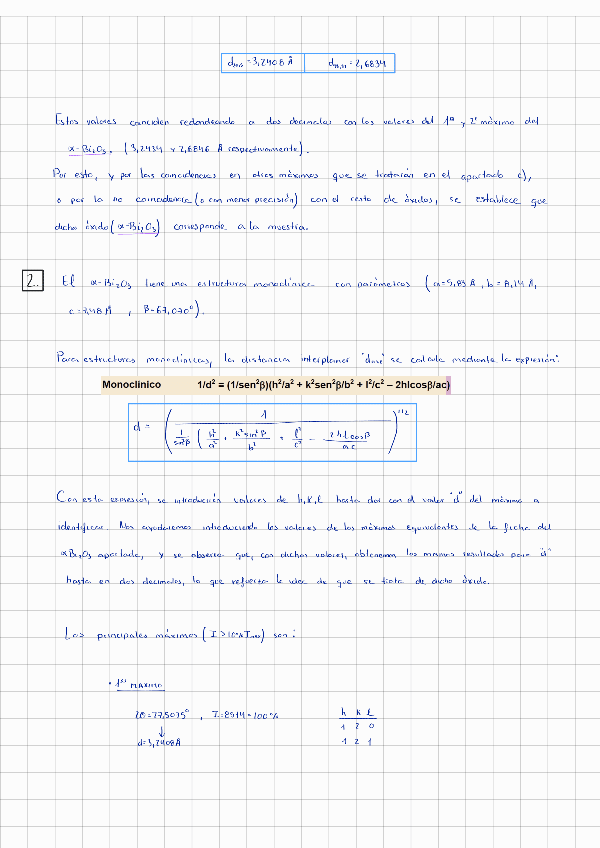 = 3,2408 Å = 2,6834
Estos valores coinciden redondeando a dos decimales con los valores del 1er y 2º máximo del
α-Bi₂O₃. (3,2434 y 2,6846 Å respectivamente).
Por esto, y por las coincidencias en otros máximos que se tratarán en el apartado c),
o por la no coincidencia (o con menor precisión) con el resto de óxidos, se establece que
dicho óxido (α-Bi₂O₃) corresponde a la muestra.
2.. El α-Bi₂O₃ tiene una estructura monoclínica con parámetros (a=5,83 Å, b=8,14 Å,
c=7,48 Å , β=67,070°).
Para estructuras monoclínicas, la distancia interplanar "dhkl" se calcula mediante la expresión:
Monoclínico 1/d² = (1/sen²β)(h²/a² + k²sen²β/b² + l²/c² – 2hlcosβ/ac)
d = ( 1 / ( 1/sin²β ( h²/a² + k² sin²β/b² + l²/c² - 2hl cosβ/ac ) )^1/2
Con esta expresión, se introducirán valores de h,k,l hasta dar con el valor "d" del máximo a
identificar. Nos ayudaremos introduciendo los valores de los máximos equivalentes de la ficha del
αBi₂O₃ aportada, y se observa que, con dichos valores, obtenemos los mismos resultados para "d"
hasta en dos decimales, lo que refuerza la idea de que se trata de dicho óxido.
Los principales máximos (I > 10% Imax) son:
• 1er MÁXIMO
2θ=27,5075° , I=8914=100% h k l
↓ 1 2 0
d=3,2408 Å 1 2 1